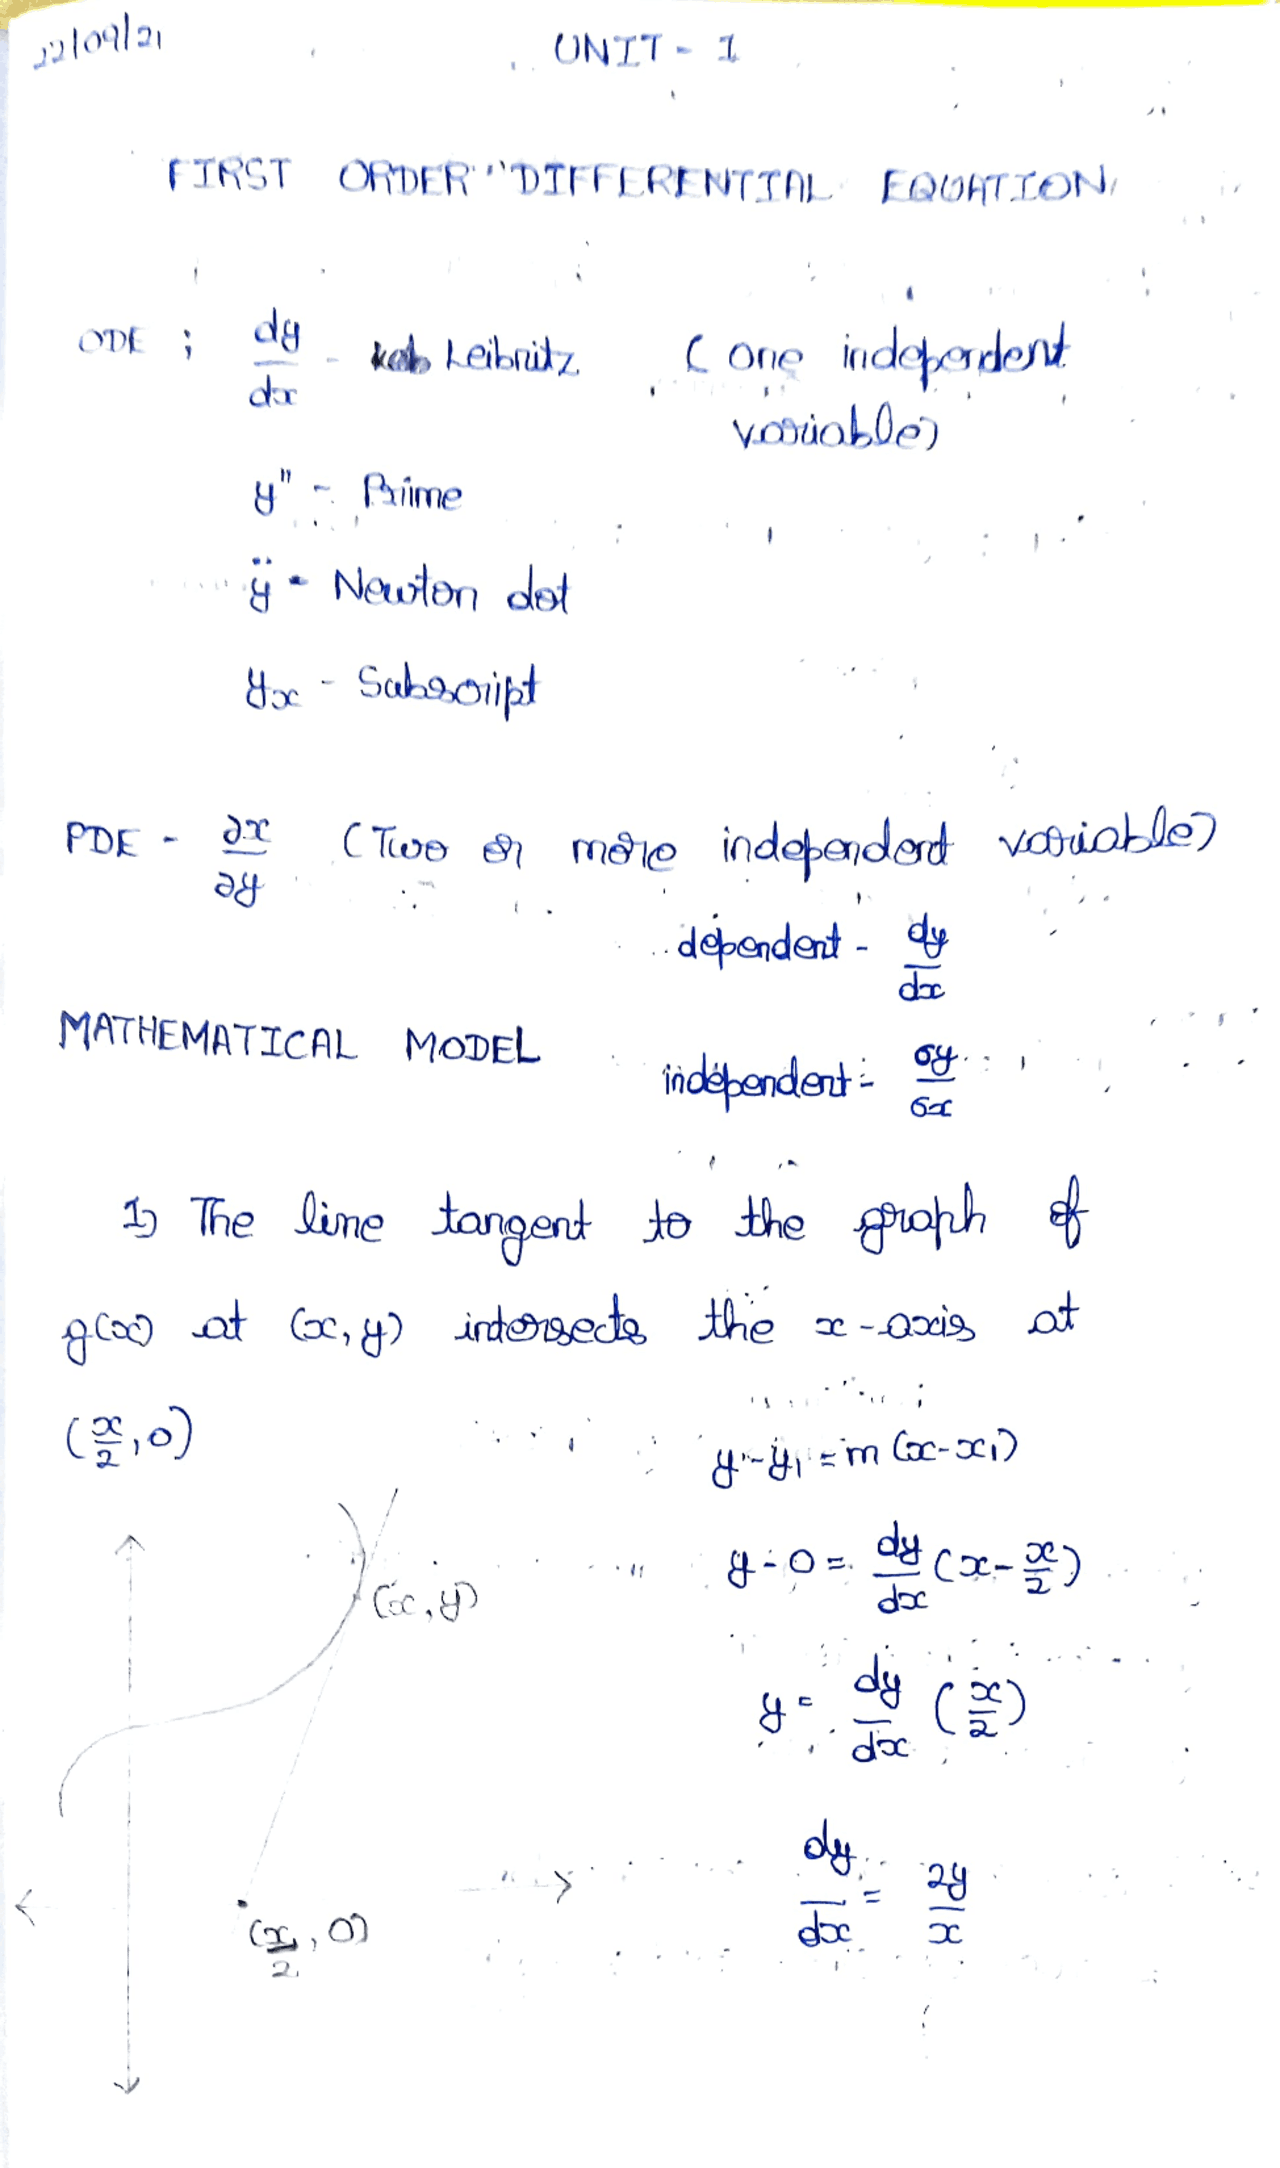 22/09/21
UNIT - 1
FIRST ORDER DIFFERENTIAL EQUATION
ODE ; dy/dx - Leibnitz (one independent
variable)
y" - Prime
ÿ - Newton dot
yx - Subscript
PDE - ∂x/∂y (Two or more independent variable)
dependent - dy/dx
MATHEMATICAL MODEL
independent - σy/σx
1) The line tangent to the graph of
g(x) at (x, y) intersects the x-axis at
(x/2, 0)
y - y1 = m (x - x1)
y - 0 = dy/dx (x - x/2)
(x, y)
y = dy/dx (x/2)
dy/dx = 2y/x
(x/2, 0)